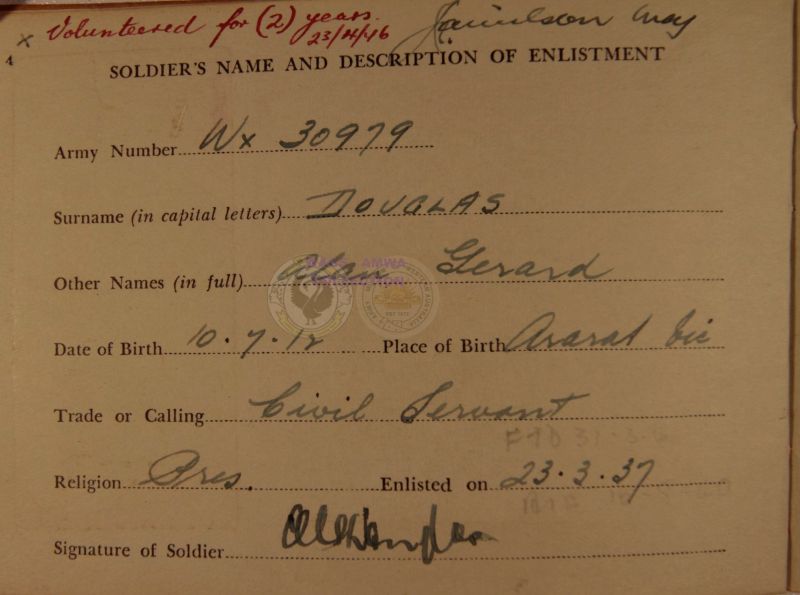 x Volunteered for (2) years.
23/4/46
4
SOLDIER'S NAME AND DESCRIPTION OF ENLISTMENT
Army Number Wx 30979
Surname (in capital letters) DOUGLAS
Other Names (in full) Alan Gerard
Date of Birth 10.7.12 Place of Birth Ararat Vic
Trade or Calling Civil Servant
Religion Pres. Enlisted on 23.3.37
Signature of Soldier